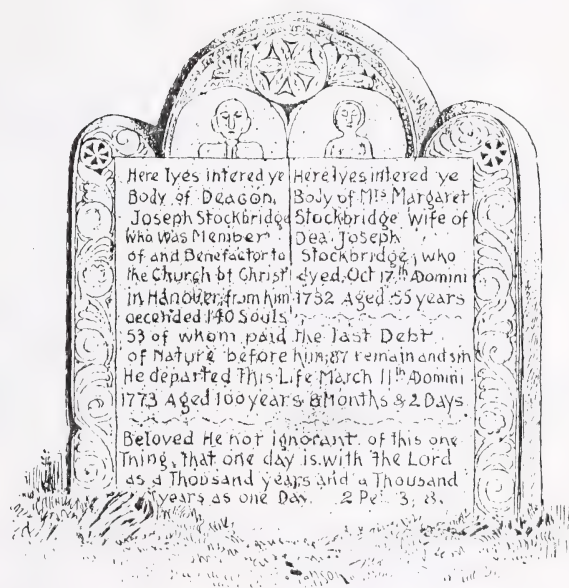 Here lyes intered ye
Body of Deacon
Joseph Stockbridge
Who Was Member
of and Benefactor to
the Church of Christ
in Hanover, from him
decended 140 Souls
Here lyes intered ye
Body of Mrs Margaret
Stockbridge Wife of
Dea Joseph
Stockbridge, who
dyed, Oct 17th Domini
1732 Aged 55 years
53 of whom paid the last Debt
of Nature before him, 87 remain and
He departed This Life March 11th Domini
1773 Aged 100 years 8 Months & 2 Days
Beloved He not ignorant of this one
Thing, that one day is with the Lord
as a Thousand years and a Thousand
years as one Day. 2 Pe. 3, 8.